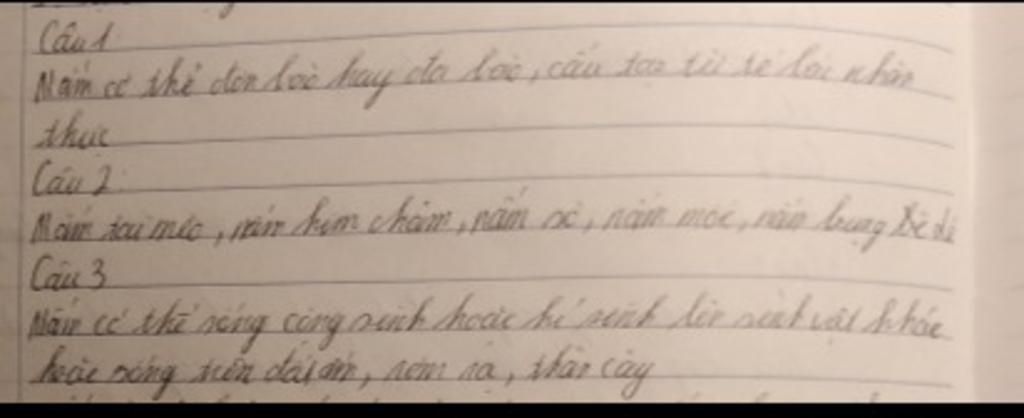 Câu 1
Nấm có thể đơn bào hay đa bào, cấu tạo từ tế bào nhân
thực
Câu 2:
Nấm tai mèo, nấm kim châm, nấm sò, nấm mốc, nấm bụng dê
Câu 3
Nấm có thể sống cộng sinh hoặc kí sinh lên sinh vật khác
hoặc sống trên đất ẩm, rơm rạ, thân cây